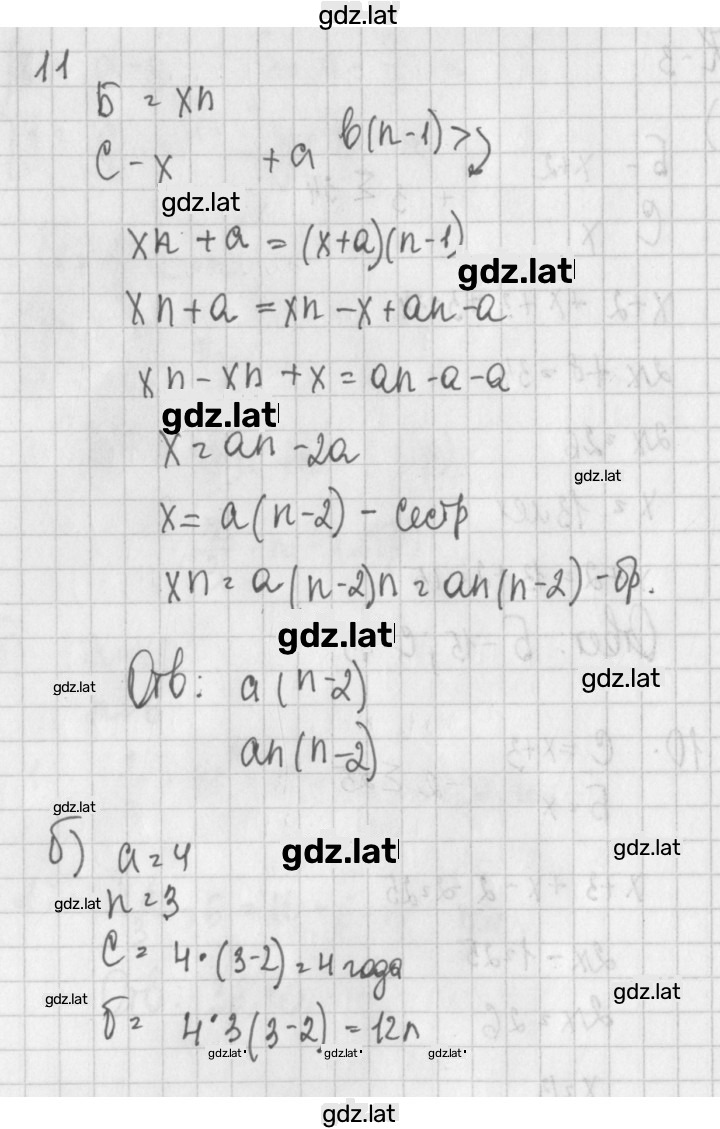 gdz.lat
11
Б = xn
С - x + a в(n-1) >
gdz.lat
xn + a = (x+a)(n-1)
gdz.lat
xn + a = xn - x + an - a
xn - xn + x = an - a - a
gdz.lat
x = an - 2a
gdz.lat
x = a(n-2) - сестр
xn = a(n-2)n = an(n-2) - бр.
gdz.lat
gdz.lat
Отв: a(n-2)
gdz.lat
an(n-2)
gdz.lat
б) a = 4
gdz.lat
gdz.lat
gdz.lat
n = 3
С = 4·(3-2) = 4 года
gdz.lat
gdz.lat
б = 4·3(3-2) = 12л
gdz.lat
gdz.lat
gdz.lat
gdz.lat